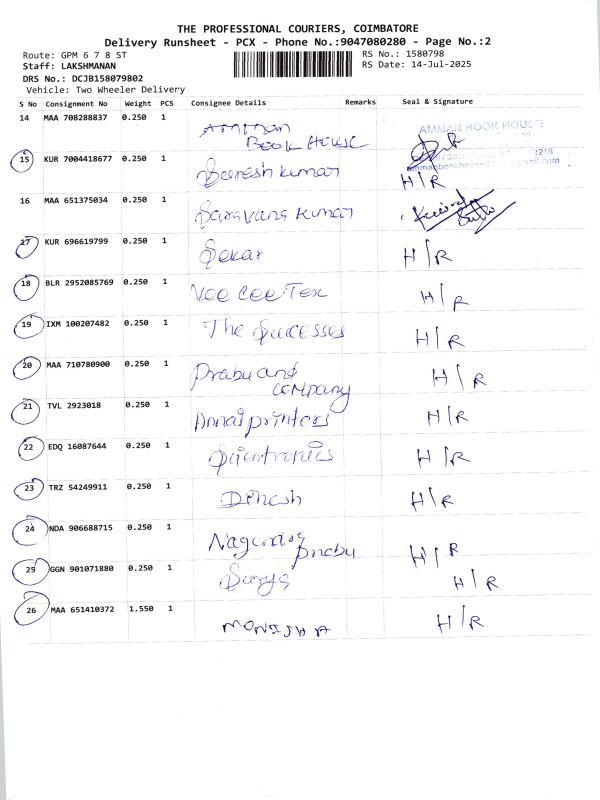 THE PROFESSIONAL COURIERS, COIMBATORE
Delivery Runsheet - PCX - Phone No.:9047080280 - Page No.:2
Route: GPM 6 7 8 ST
RS No.: 1580798
Staff: LAKSHMANAN
RS Date: 14-Jul-2025
DRS No.: DCJB158079802
Vehicle: Two Wheeler Delivery
S No Consignment No Weight PCS Consignee Details Remarks Seal & Signature
14 MAA 708288837 0.250 1 Amman
Book House
AMMAN BOOK HOUSE
15 KUR 7004418677 0.250 1 Sureshkumar H/R
16 MAA 651375034 0.250 1 Saravana Kumar
17 KUR 696619799 0.250 1 Sekar H/R
18 BLR 2952085769 0.250 1 Vee Cee Tex H/R
19 IXM 100207482 0.250 1 The Sucesses H/R
20 MAA 710780900 0.250 1 Prabu and H/R
company
21 TVL 2923018 0.250 1 Annai printers H/R
22 EDQ 16087644 0.250 1 Scientronics H/R
23 TRZ 54249911 0.250 1 Dinesh H/R
24 NDA 906688715 0.250 1 H/R
prabu
25 GGN 901071880 0.250 1 Surya H/R
26 MAA 651410372 1.550 1 MONISHA H/R